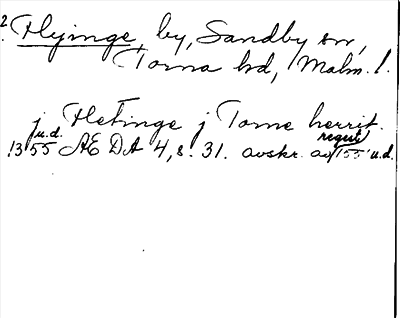 2. Flyinge by, Sandby sn,
Torna hd, Malm. l.
j Fletinge j Torne herrit.
u.d.
1355 ÆDA 4, s. 31. avskr. av regest 155 u.d.